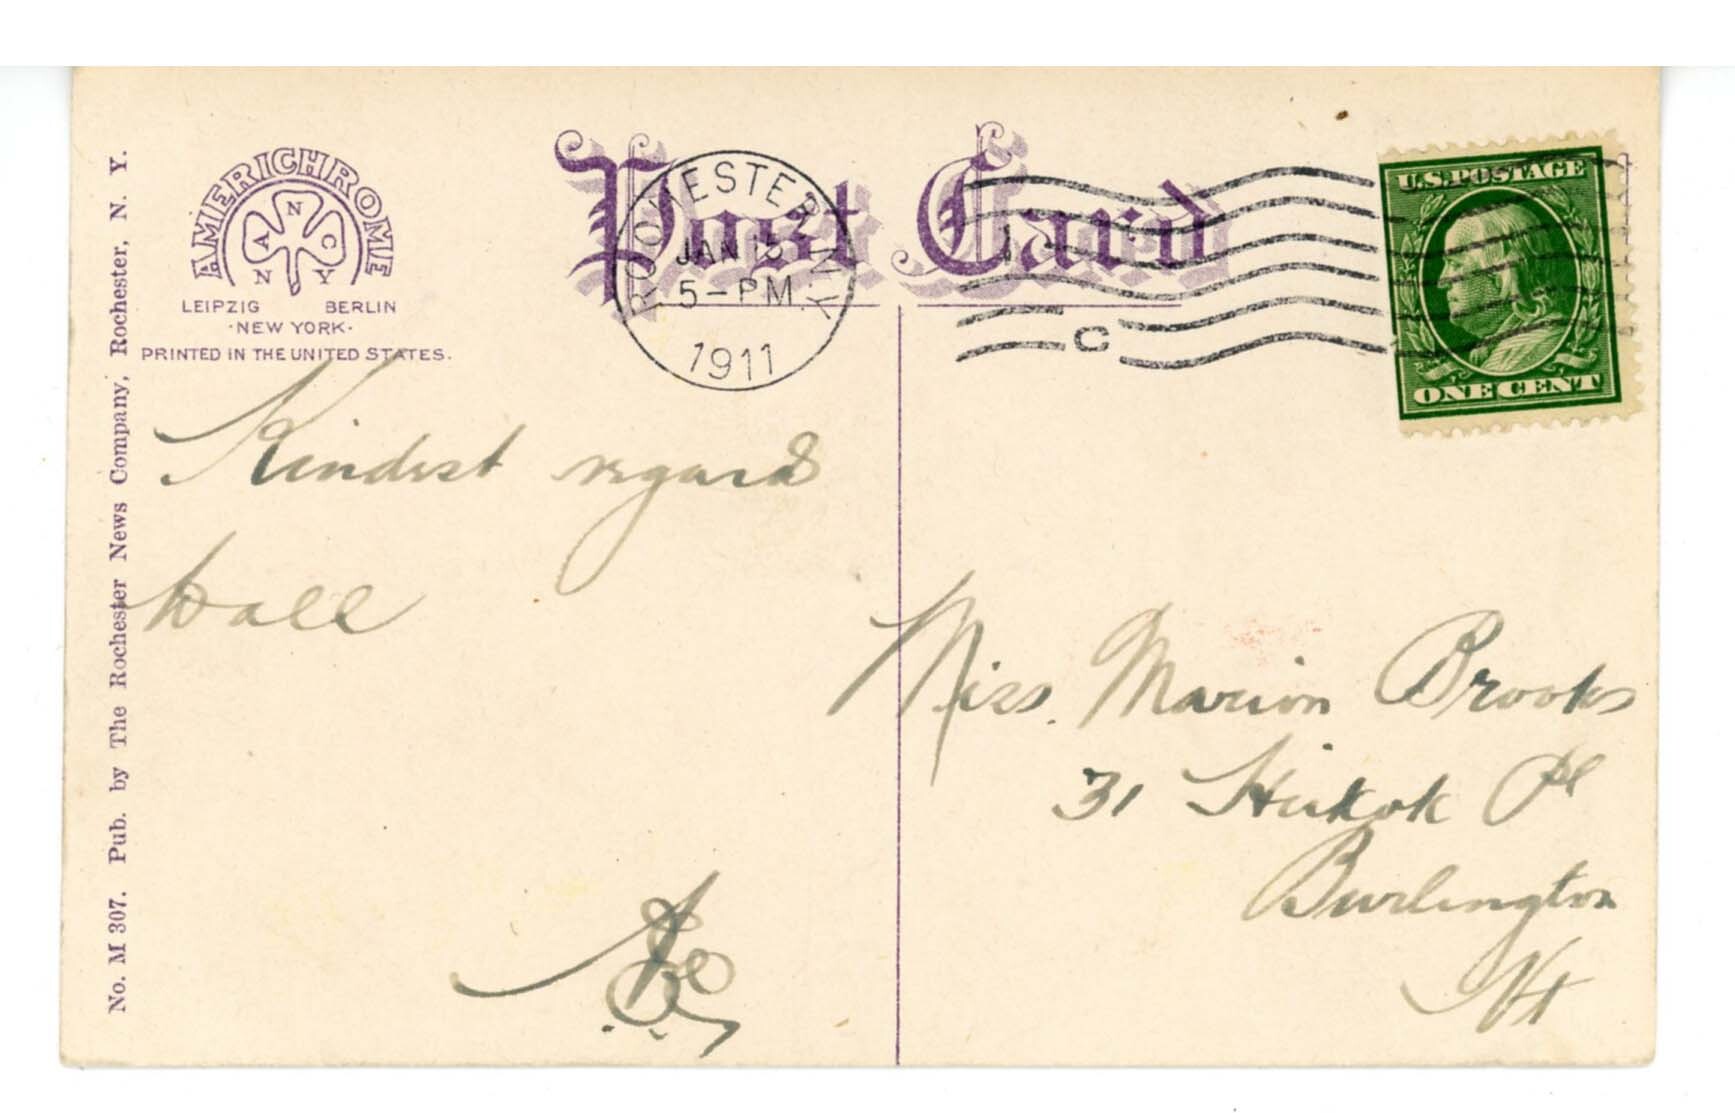 No. M 307. Pub. by The Rochester News Company, Rochester, N. Y.
AMERICHROME
N
A C
N Y
LEIPZIG BERLIN
·NEW YORK·
PRINTED IN THE UNITED STATES.
Post Card
ROCHESTER N.Y.
JAN 15
5-PM
1911
C
U.S. POSTAGE
ONE CENT
Kindest regards
to all
Miss. Marion Brooks
31 Hickok Pl
Burlington
Vt